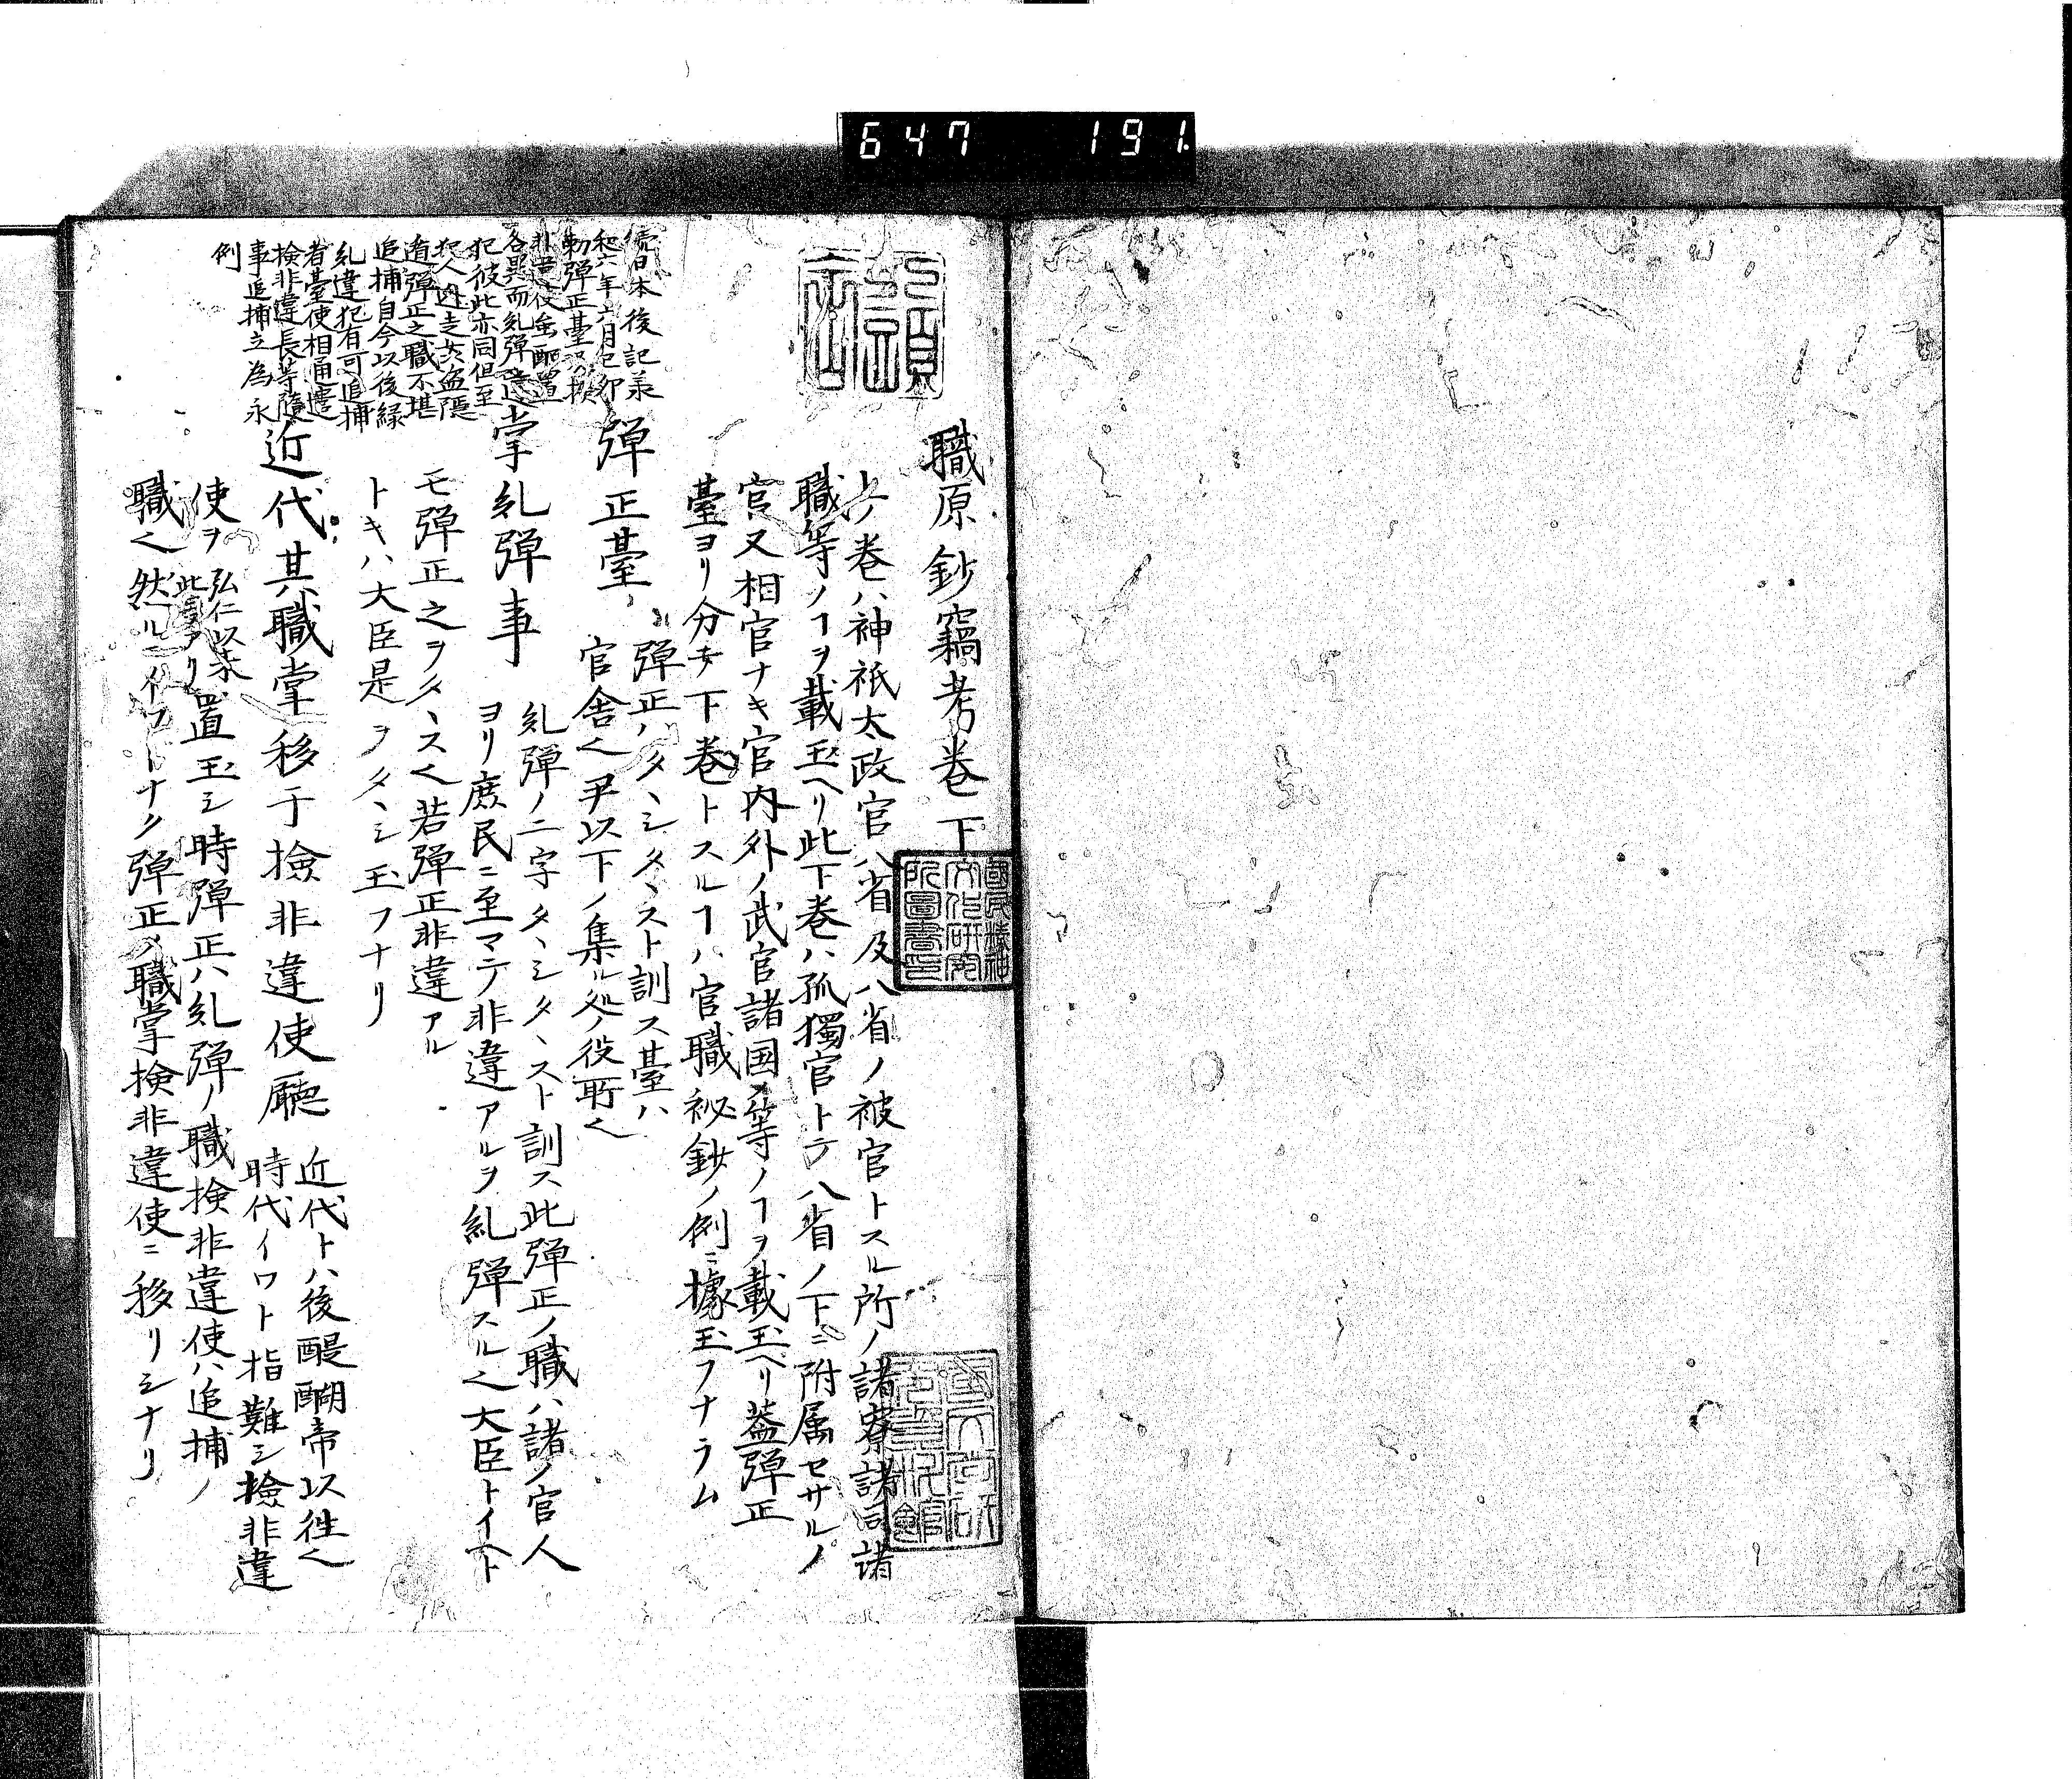 647 191
職原鈔竊考巻下
上ノ巻ハ神祇太政官八省及八省ノ被官トスル所ノ諸寮諸司諸
職等ノヿヲ載玉ヘリ此下巻ハ孤獨官トテ八省ノ下ニ附属セサルノ
官又相官ナキ官内外ノ武官諸国ノ等ノヿヲ載玉ヘリ蓋弾正
臺ヨリ分チ下巻トスルヿハ官職秘鈔ノ例ニ據玉フナラム
弾正臺
弾正ハタヽシタヽスト訓ス臺ハ
官舎也尹以下ノ集ル処ノ役所也
掌糺弾事
糺弾ノ二字タヽシタヽスト訓ス此弾正ノ職ハ諸ノ官人
ヨリ庶民ニ至マテ非違アルヲ糺弾スル也大臣トイヘト
モ弾正之ヲタヽス也若弾正非違アル
トキハ大臣是ヲタヽシ玉フナリ
近代其職掌移于撿非違使廳
近代トハ後醍醐帝以往也
時代イワト指難シ撿非違
使ヲ
弘仁以来
此官アリ
置玉シ時弾正ハ糺弾ノ職検非違使ハ追捕ノ
職也然ルニイツトナク弾正ノ職掌検非違使ニ移リシナリ
続日本後記承
和六年六月己卯
勅弾正臺
非違使
配置
各異而糺弾違
犯彼此亦同但至
犯人逃走
盗隠
遁弾正之職不堪
追捕自今以後縁
糺違犯有可追捕
者臺使相通遣
検非違長等随
事追捕立為永
例
國民精神
文化研究
所圖書印